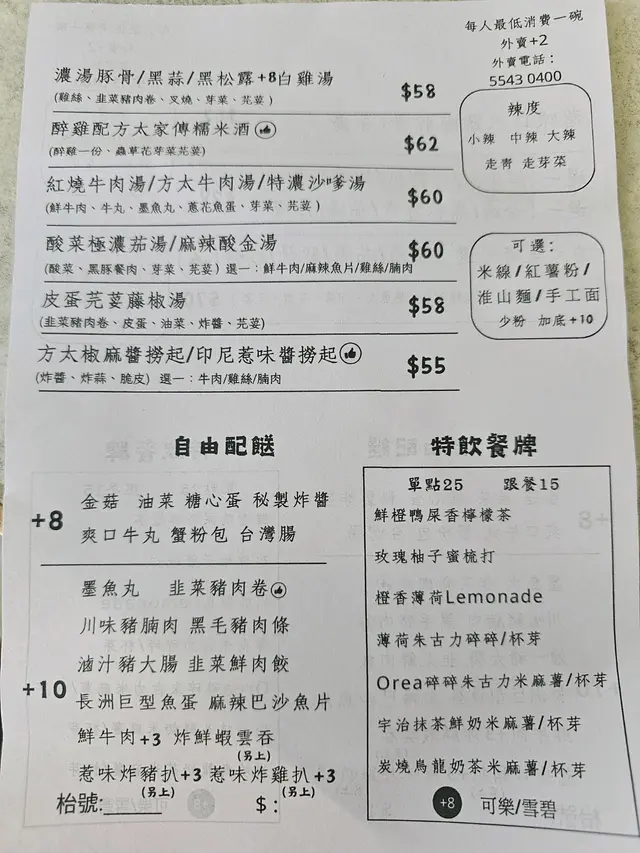 每人最低消費一碗
外賣+2
外賣電話：
5543 0400
濃湯豚骨/黑蒜/黑松露+8白雞湯
$58
(雞絲、韭菜豬肉卷、叉燒、芽菜、芫荽)
醉雞配方太家傳糯米酒
$62
(醉雞一份、蟲草花芽菜芫荽)
紅燒牛肉湯/方太牛肉湯/特濃沙嗲湯
$60
(鮮牛肉、牛丸、墨魚丸、蔥花魚蛋、芽菜、芫荽)
酸菜極濃茄湯/麻辣酸金湯
$60
(酸菜、黑豚餐肉、芽菜、芫荽) 選一：鮮牛肉/麻辣魚片/雞絲/腩肉
皮蛋芫荽藤椒湯
$58
(韭菜豬肉卷、皮蛋、油菜、炸醬、芫荽)
方太椒麻醬撈起/印尼惹味醬撈起
$55
(炸醬、炸蒜、脆皮) 選一：牛肉/雞絲/腩肉
辣度
小辣 中辣 大辣
走青 走芽菜
可選：
米線/紅薯粉/
淮山麵/手工面
少粉 加底+10
自由配餸
+8
金菇 油菜 糖心蛋 秘製炸醬
爽口牛丸 蟹粉包 台灣腸
+10
墨魚丸 韭菜豬肉卷
川味豬腩肉 黑毛豬肉條
滷汁豬大腸 韭菜鮮肉餃
長洲巨型魚蛋 麻辣巴沙魚片
鮮牛肉+3 炸鮮蝦雲吞
(另上)
惹味炸豬扒+3 惹味炸雞扒+3
(另上) (另上)
枱號:
$：
特飲餐牌
單點25 跟餐15
鮮橙鴨屎香檸檬茶
玫瑰柚子蜜梳打
橙香薄荷Lemonade
薄荷朱古力碎碎/杯芽
Orea碎碎朱古力米麻薯/杯芽
宇治抹茶鮮奶米麻薯/杯芽
炭燒烏龍奶茶米麻薯/杯芽
+8 可樂/雪碧